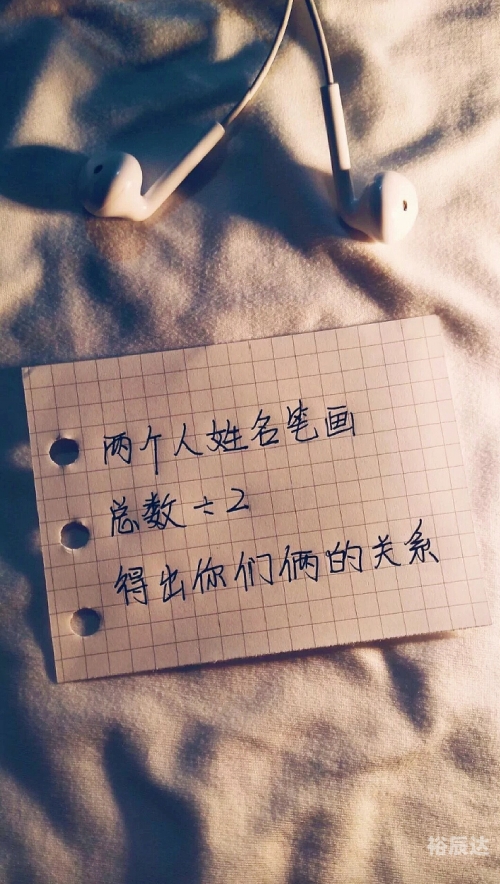 两个人姓名笔画
总数÷2
得出你们俩的关系
裕辰达